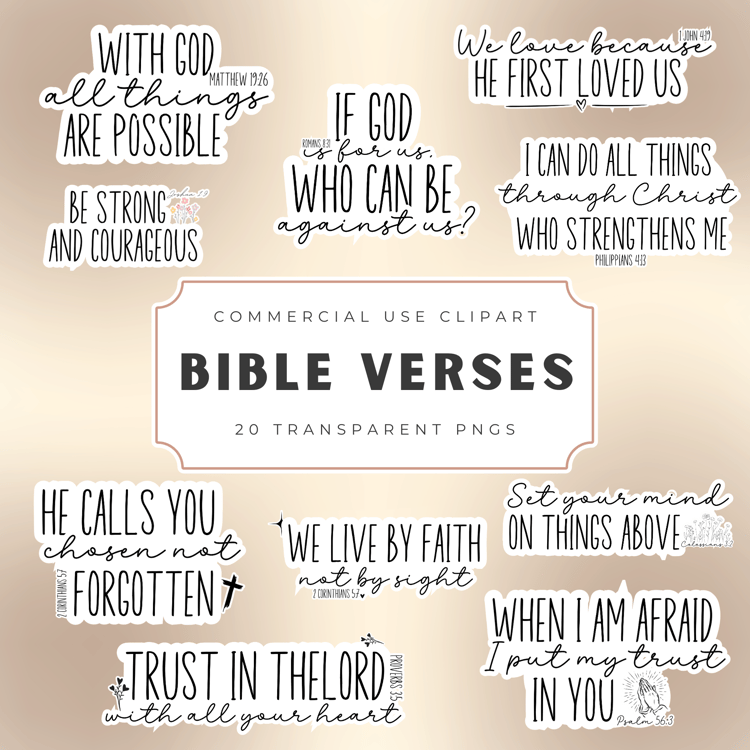 WITH GOD
MATTHEW 19:26
all things
ARE POSSIBLE
1 JOHN 4:19
We love because
HE FIRST LOVED US
IF GOD
ROMANS 8:31
is for us,
WHO CAN BE
against us?
I CAN DO ALL THINGS
through Christ
WHO STRENGTHENS ME
PHILIPPIANS 4:13
BE STRONG
Joshua 1:9
AND COURAGEOUS
COMMERCIAL USE CLIPART
BIBLE VERSES
20 TRANSPARENT PNGS
HE CALLS YOU
chosen not
FORGOTTEN
2 CORINTHIANS 5:7
WE LIVE BY FAITH
not by sight
2 CORINTHIANS 5:7
Set your mind
ON THINGS ABOVE
Colossians 3:2
TRUST IN THELORD
PROVERBS 3:5
with all your heart
WHEN I AM AFRAID
I put my trust
IN YOU
Psalm 56:3